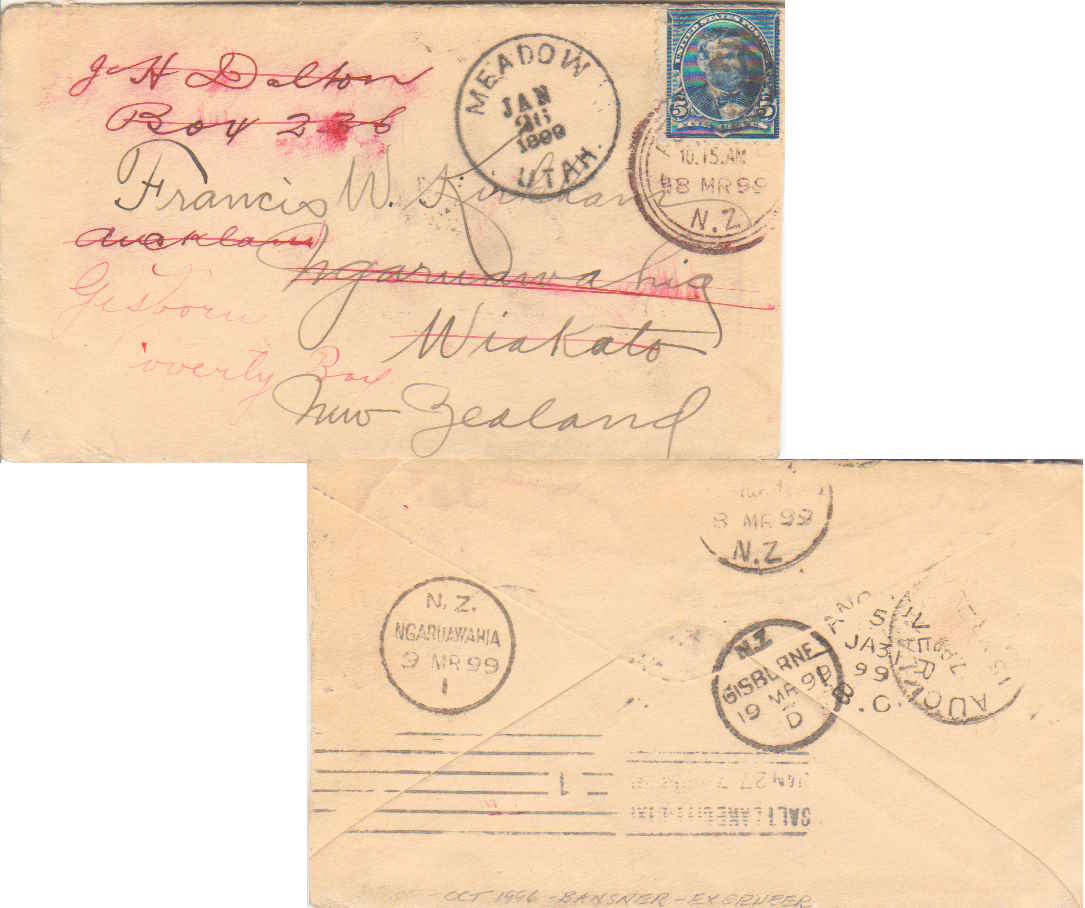 J H Dalton
Box 236
MEADOW
JAN
26
1899
UTAH.
UNITED STATES POSTAGE
5 5
10.15.AM
8 MR 99
N.Z
Francis W. Kirkham
Auckland
Ngaruawahia
Gisborn
Wiakato
overty Bay
New Zealand
8 MR 99
N.Z
N.Z.
NGARUAWAHIA
9 MR 99
1
N.Z
GISBORNE
19 MR 99
D
5
JA 31
99
.C.
AUCK
1
JAN 27
SALT LAKE CITY
OCT 1996 - BANSNER - EX GRUBER